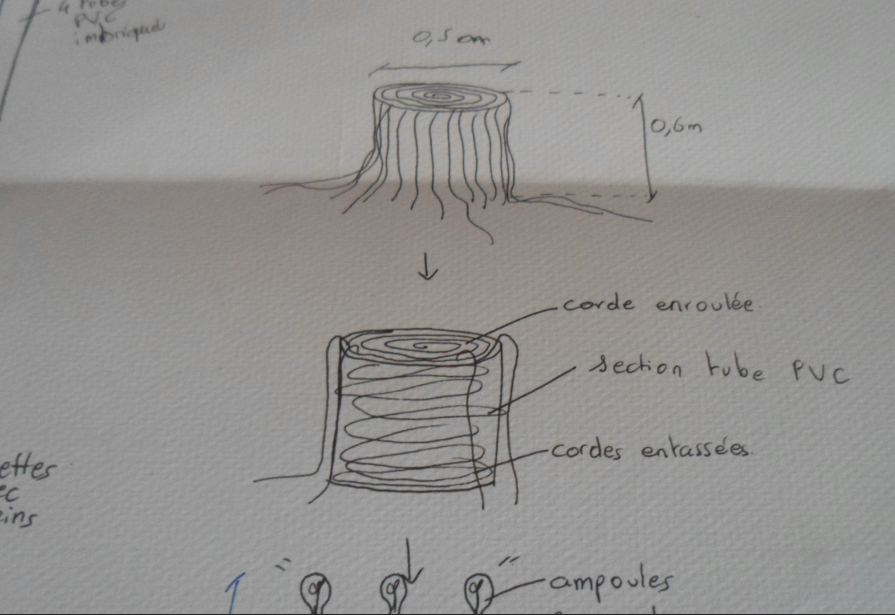 4 tubes
PVC
imbriqués
0,5 m
0,6m
corde enroulée.
section tube PVC
cordes entassées.
ettes
ec
eins
ampoules